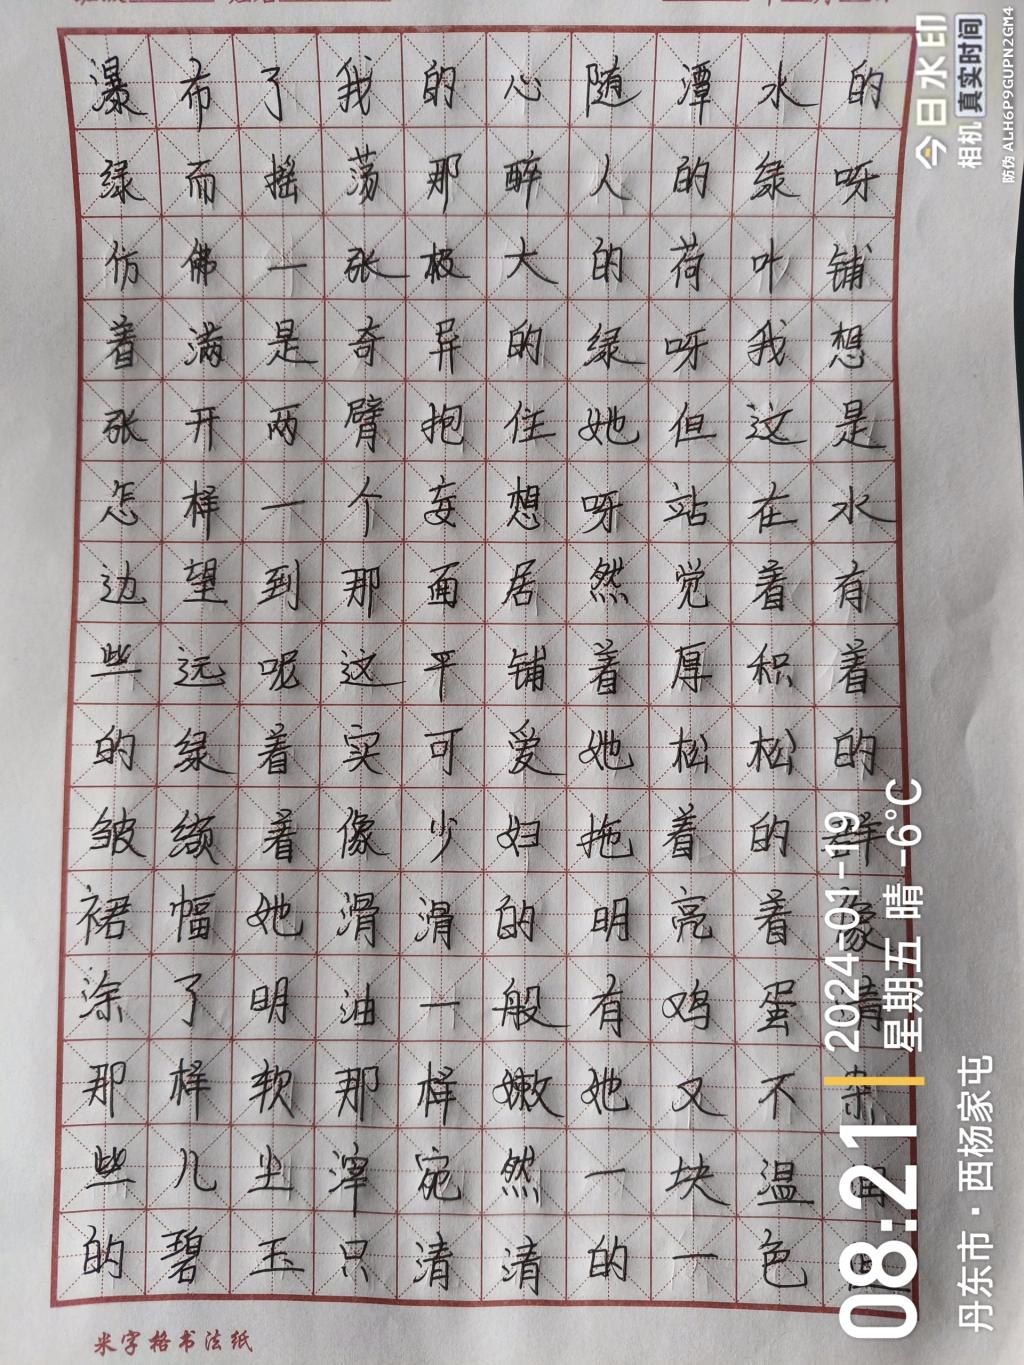 瀑布了我的心随潭水的
绿而摇荡那醉人的绿呀
仿佛一张极大的荷叶铺
着满是奇异的绿呀我想
张开两臂抱住她但这是
怎样一个妄想呀站在水
边望到那面居然觉着有
些远呢这平铺着厚积着
的绿着实可爱她松松的
皱缬着像少妇拖着的
裙幅她滑滑的明亮着像
涂了明油一般有鸡蛋清
那样软那样嫩她又不杂
些儿尘滓宛然一块温
的碧玉只清清的一色
米字格书法纸
今日水印
相机 真实时间
防伪 ALH6P9GUPN2GM4
08:21
2024-01-19
星期五 晴 -6°C
丹东市·西杨家屯